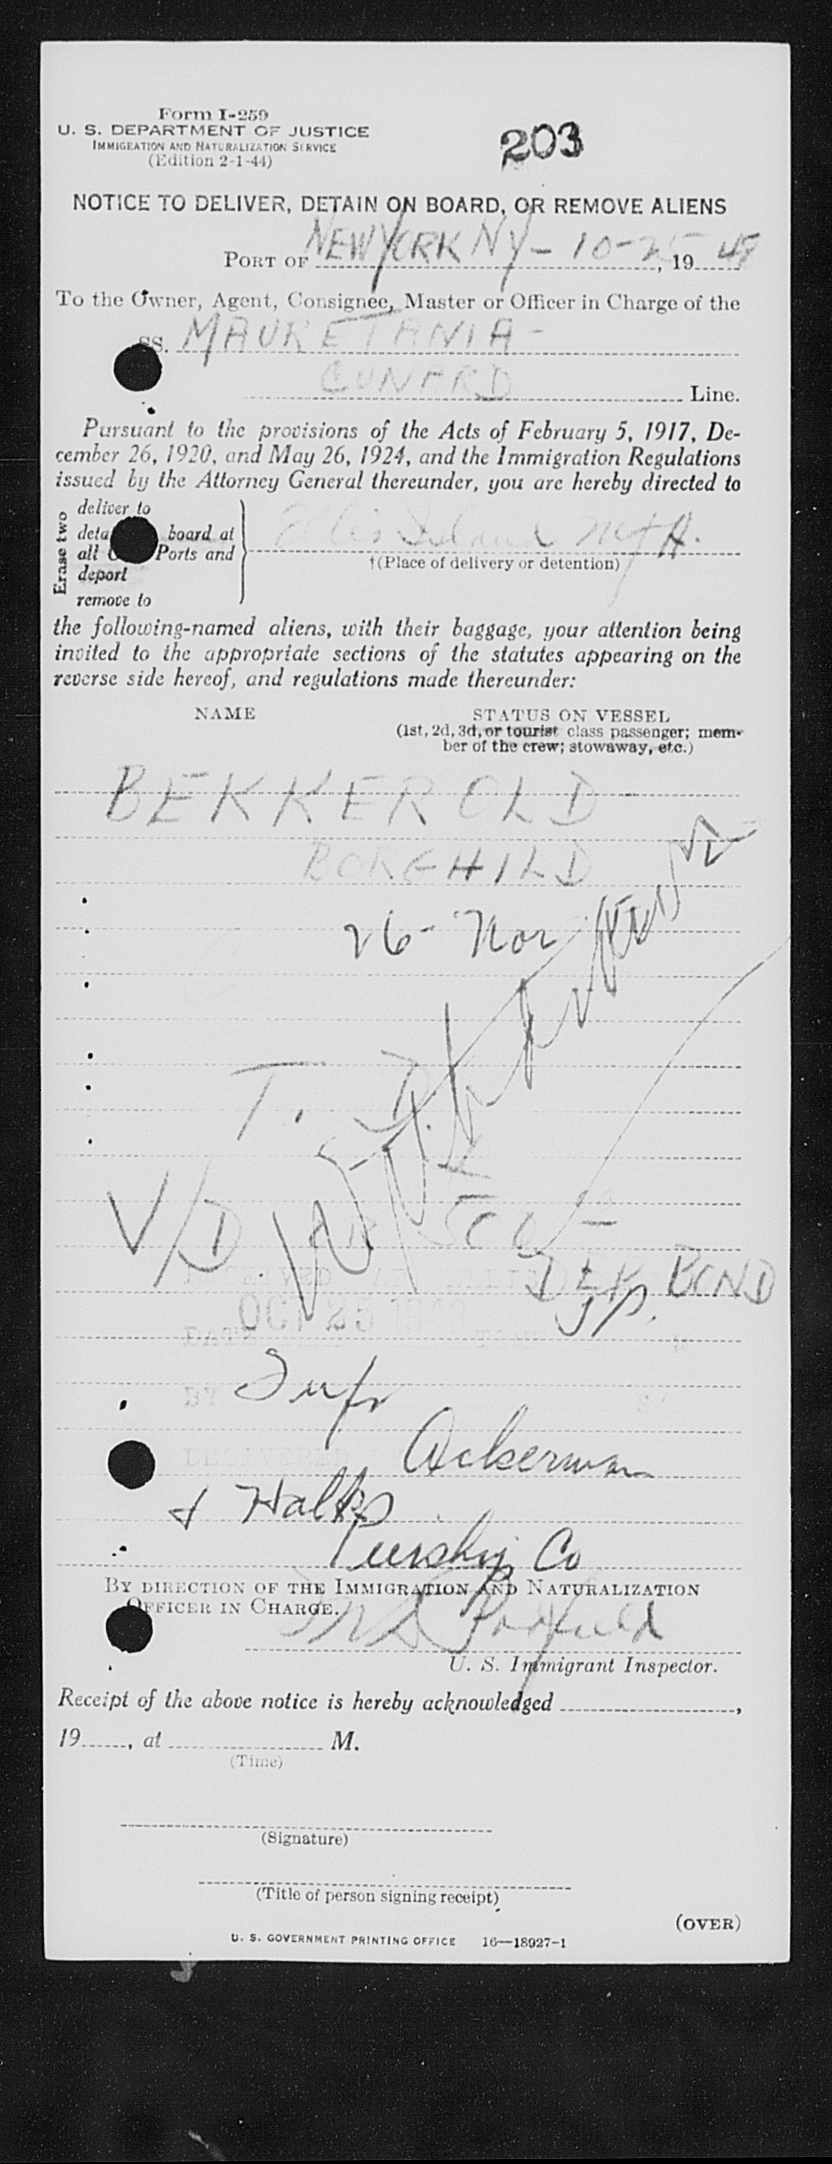 Form I-259
U. S. DEPARTMENT OF JUSTICE
IMMIGRATION AND NATURALIZATION SERVICE
(Edition 2-1-44)
203
NOTICE TO DELIVER, DETAIN ON BOARD, OR REMOVE ALIENS
PORT OF NEW YORK NY - 10-25, 1948
To the Owner, Agent, Consignee, Master or Officer in Charge of the
SS. MAURETANIA -
CUNARD Line.
Pursuant to the provisions of the Acts of February 5, 1917, De-
cember 26, 1920, and May 26, 1924, and the Immigration Regulations
issued by the Attorney General thereunder, you are hereby directed to
Erase two
deliver to
board at
all Ports and
deport
remove to
Ellis Island
†(Place of delivery or detention)
the following-named aliens, with their baggage, your attention being
invited to the appropriate sections of the statutes appearing on the
reverse side hereof, and regulations made thereunder:
NAME STATUS ON VESSEL
(1st, 2d, 3d, or tourist class passenger; mem-
ber of the crew; stowaway, etc.)
BEKKEROLD -
BORGHILD
26- Nor
T. D.
V/D
BOND
OCT 25 1948
Ackerman
&
Co
BY DIRECTION OF THE IMMIGRATION AND NATURALIZATION
OFFICER IN CHARGE.
U. S. Immigrant Inspector.
Receipt of the above notice is hereby acknowledged ,
19 , at M.
(Time)
(Signature)
(Title of person signing receipt)
(OVER)
U. S. GOVERNMENT PRINTING OFFICE 16—18027-1